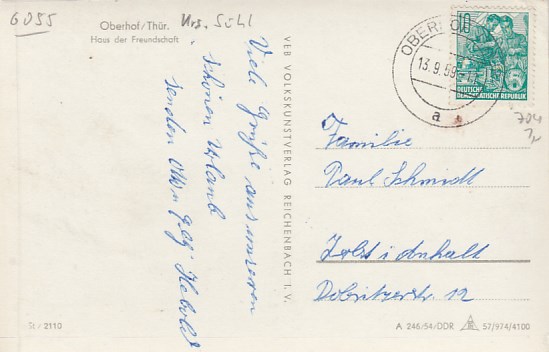 6055
Krs. Suhl
Oberhof/Thür.
Haus der Freundschaft
Viele Grüße aus unserem
schönen Urlaub
senden
VEB VOLKSKUNSTVERLAG REICHENBACH I. V.
OBERHOF
13.9.59
a
10
DEUTSCHE
DEMOKRATISCHE REPUBLIK
Familie
Paul Schmidt
Zerbst i Anhalt
Dobritzerstr. 12
St / 2110
A 246/54/DDR 57/974/4100